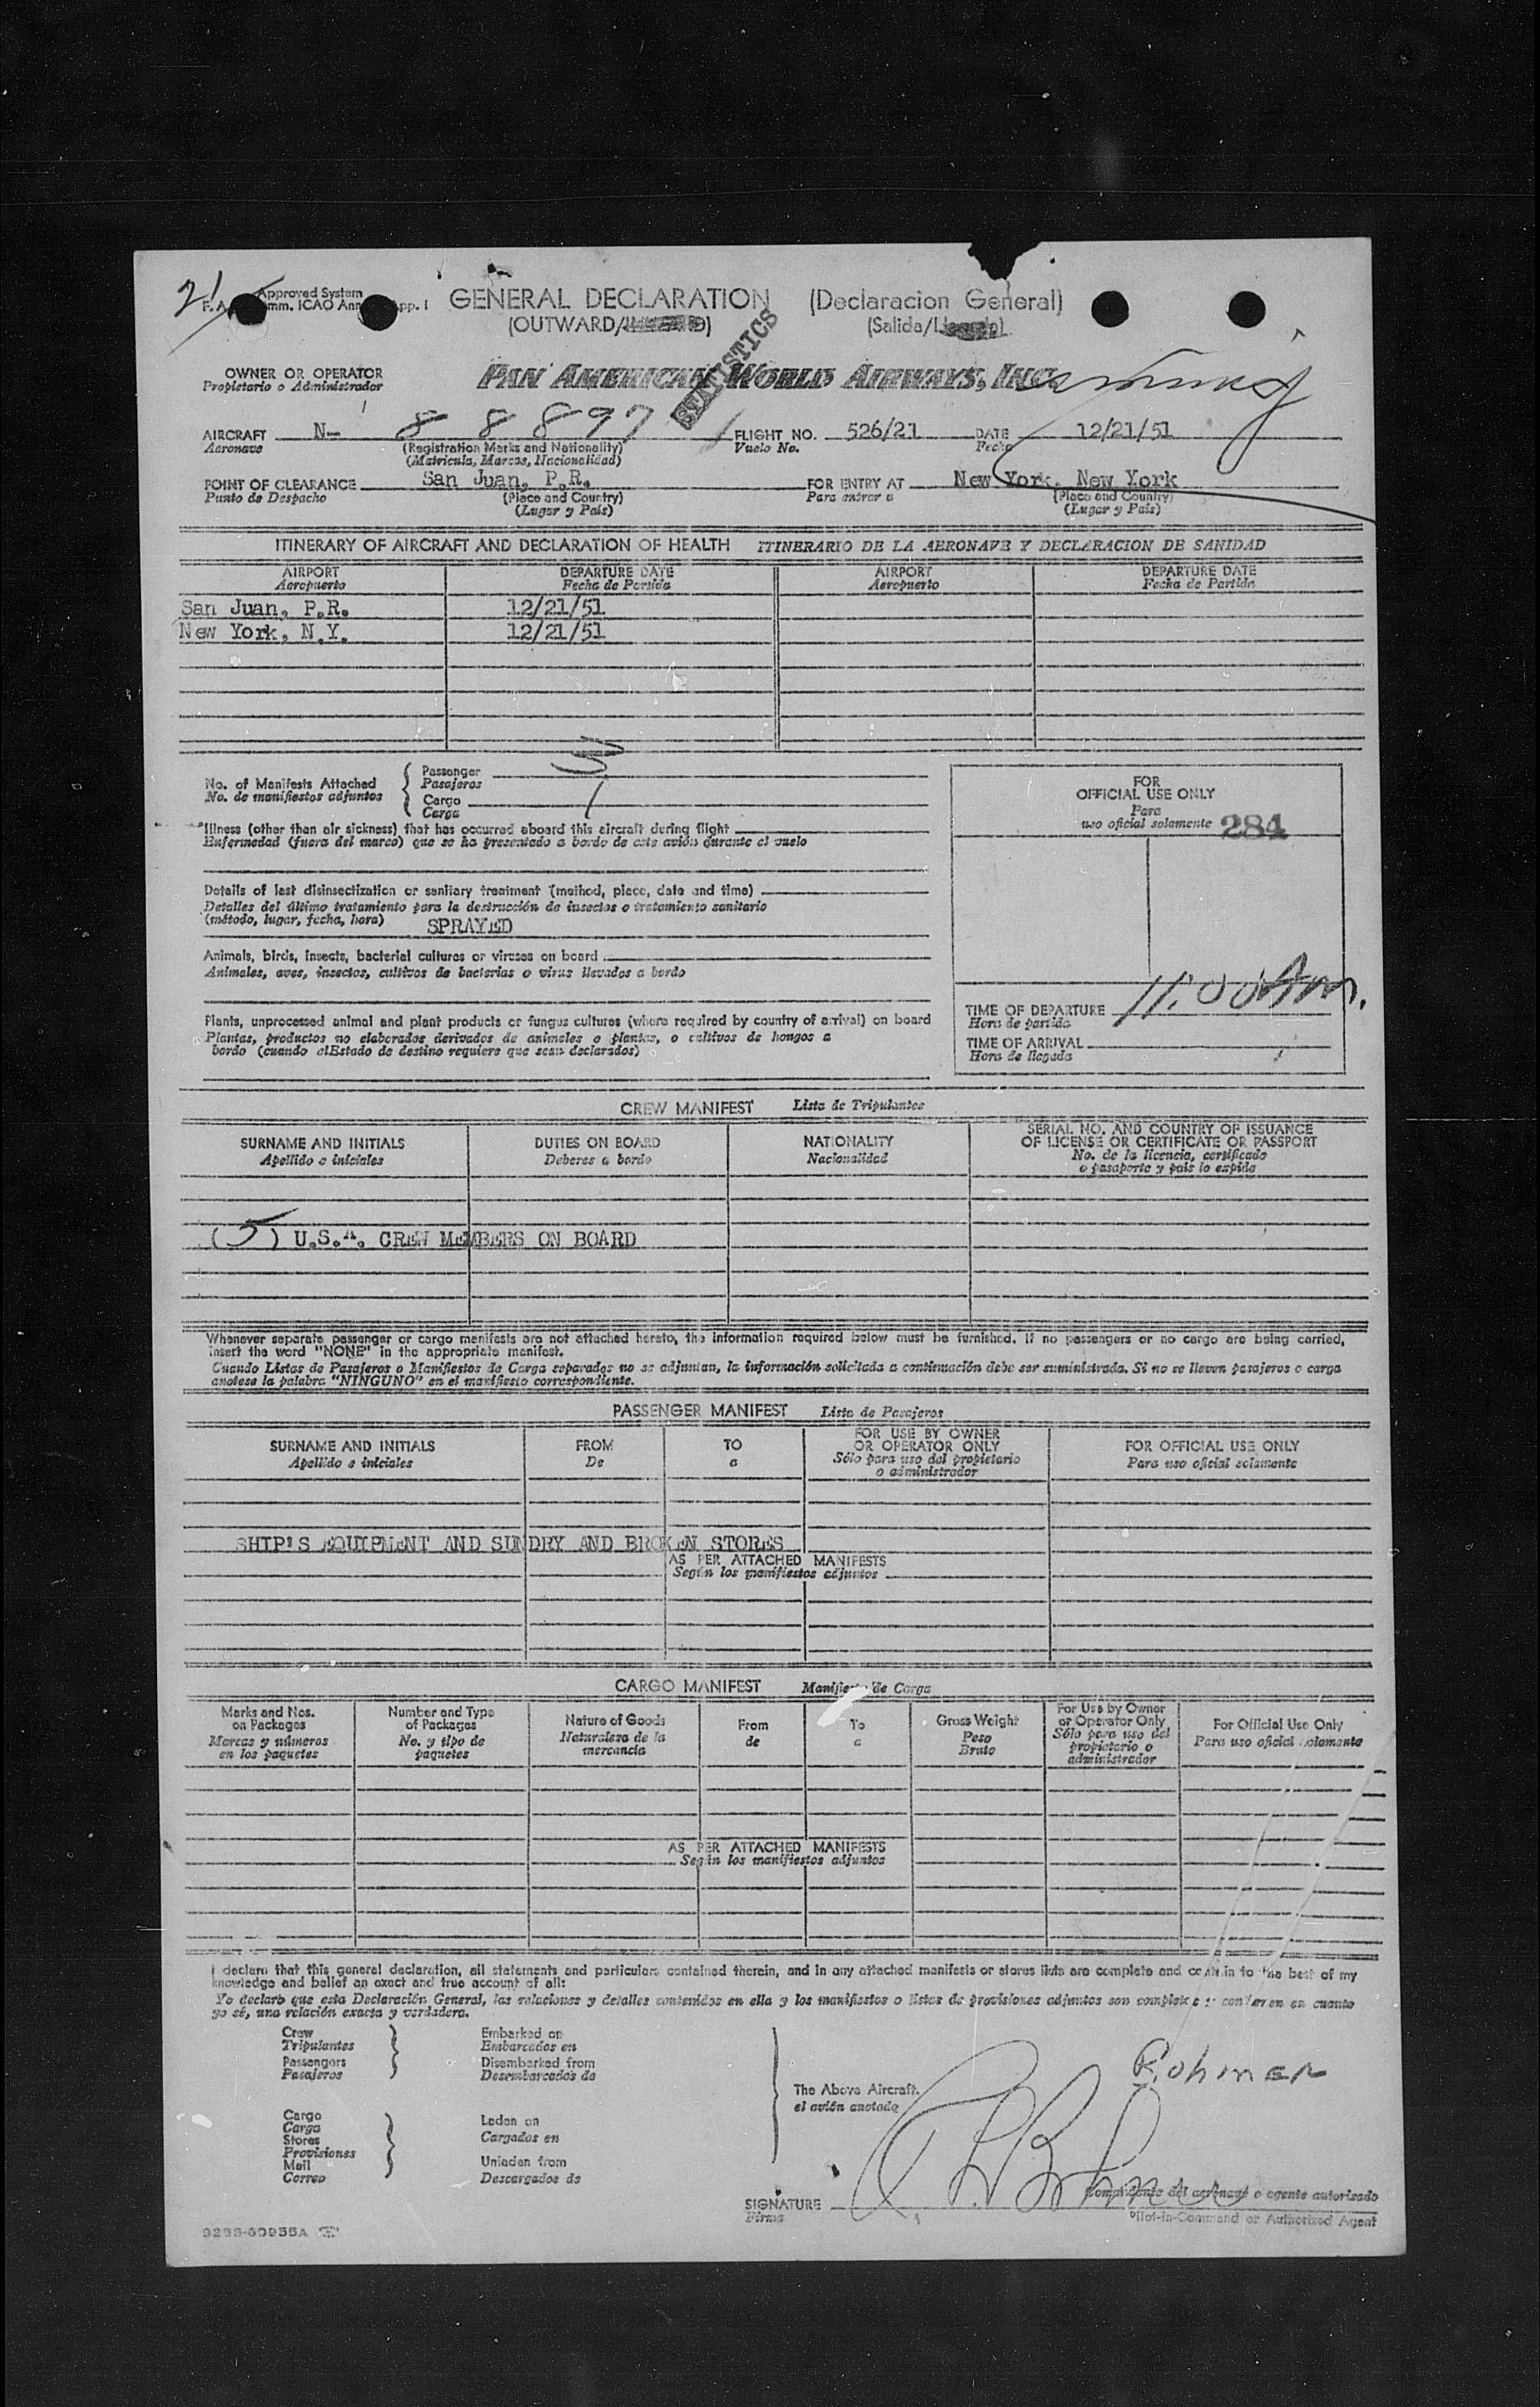 21
Approved System
F.A. Comm. ICAO Ann App. I
GENERAL DECLARATION (Declaracion General)
(OUTWARD/ ) (Salida/ )
STATISTICS
OWNER OR OPERATOR PAN AMERICAN WORLD AIRWAYS, INC.
Propietario o Administrador
AIRCRAFT N- 88897 FLIGHT NO. 526/21 DATE 12/21/51
Aeronave (Registration Marks and Nationality) Vuelo No. Fecha
(Matricula, Marcas, Nacionalidad)
POINT OF CLEARANCE San Juan, P.R. FOR ENTRY AT New York, New York
Punto de Despacho (Place and Country) Para entrar a (Place and Country)
(Lugar y País) (Lugar y País)
ITINERARY OF AIRCRAFT AND DECLARATION OF HEALTH ITINERARIO DE LA AERONAVE Y DECLARACION DE SANIDAD
AIRPORT DEPARTURE DATE AIRPORT DEPARTURE DATE
Aeropuerto Fecha de Partida Aeropuerto Fecha de Partida
San Juan, P.R. 12/21/51
New York, N.Y. 12/21/51
No. of Manifests Attached Passenger 3
No. de manifiestos adjuntos Pasajeros
Cargo 1
Carga
FOR
OFFICIAL USE ONLY
Para
uso oficial solamente 284
Illness (other than air sickness) that has occurred aboard this aircraft during flight
Enfermedad (fuera del mareo) que se ha presentado a bordo de este avión durante el vuelo
Details of last disinsectization or sanitary treatment (method, place, date and time)
Detalles del último tratamiento para la destrucción de insectos o tratamiento sanitario
(método, lugar, fecha, hora) SPRAYED
Animals, birds, insects, bacterial cultures or viruses on board
Animales, aves, insectos, cultivos de bacterias o virus llevados a bordo
Plants, unprocessed animal and plant products or fungus cultures (where required by country of arrival) on board
Plantas, productos no elaborados derivados de animales o plantas, o cultivos de hongos a
bordo (cuando elEstado de destino requiere que sean declarados)
TIME OF DEPARTURE 11:00 Am.
Hora de partida
TIME OF ARRIVAL
Hora de llegada
CREW MANIFEST Lista de Tripulantes
SURNAME AND INITIALS DUTIES ON BOARD NATIONALITY SERIAL NO. AND COUNTRY OF ISSUANCE
OF LICENSE OR CERTIFICATE OR PASSPORT
Apellido e iniciales Deberes a bordo Nacionalidad No. de la licencia, certificado
o pasaporte y pais lo expide
(5) U.S.A. CREW MEMBERS ON BOARD
Whenever separate passenger or cargo manifests are not attached hereto, the information required below must be furnished. If no passengers or no cargo are being carried,
insert the word "NONE" in the appropriate manifest.
Cuando Listas de Pasajeros o Manifiestos de Carga separados no se adjuntan, la información solicitada a continuación debe ser suministrada. Si no se lleven pasajeros o carga
anotese la palabra "NINGUNO" en el manifiesto correspondiente.
PASSENGER MANIFEST Lista de Pasajeros
SURNAME AND INITIALS FROM TO FOR USE BY OWNER
OR OPERATOR ONLY FOR OFFICIAL USE ONLY
Apellido e iniciales De a Sólo para uso del propietario
o administrador Para uso oficial solamente
SHIP'S EQUIPMENT AND SUNDRY AND BROKEN STORES
AS PER ATTACHED MANIFESTS
Según los manifiestos adjuntos
CARGO MANIFEST Manifiesto de Carga
Marks and Nos.
on Packages
Marcas y números
en los paquetes
Number and Type
of Packages
No. y tipo de
paquetes
Nature of Goods
Naturaleza de la
mercancia
From
de
To
a
Gross Weight
Peso
Bruto
For Use by Owner
or Operator Only
Sólo para uso del
propietario o
administrador
For Official Use Only
Para uso oficial solamente
AS PER ATTACHED MANIFESTS
Según los manifiestos adjuntos
I declare that this general declaration, all statements and particulars contained therein, and in any attached manifests or stores lists are complete and contain to the best of my
knowledge and belief an exact and true account of all:
Yo declaro que esta Declaración General, las relaciones y detalles contenidos en ella y los manifiestos o listas de provisiones adjuntos son completos y contienen en cuanto
yo sé, una relación exacta y verdadera.
Crew
Tripulantes
Passengers
Pasajeros
Embarked on
Embarcados en
Disembarked from
Desembarcados de
Cargo
Carga
Stores
Provisiones
Mail
Correo
Laden on
Cargados en
Unladen from
Descargados de
The Above Aircraft.
el avión anotado
Rohmer
SIGNATURE
Firma
Comandante del aeronave o agente autorizado
Pilot-in-Command or Authorized Agent
9238-60955A